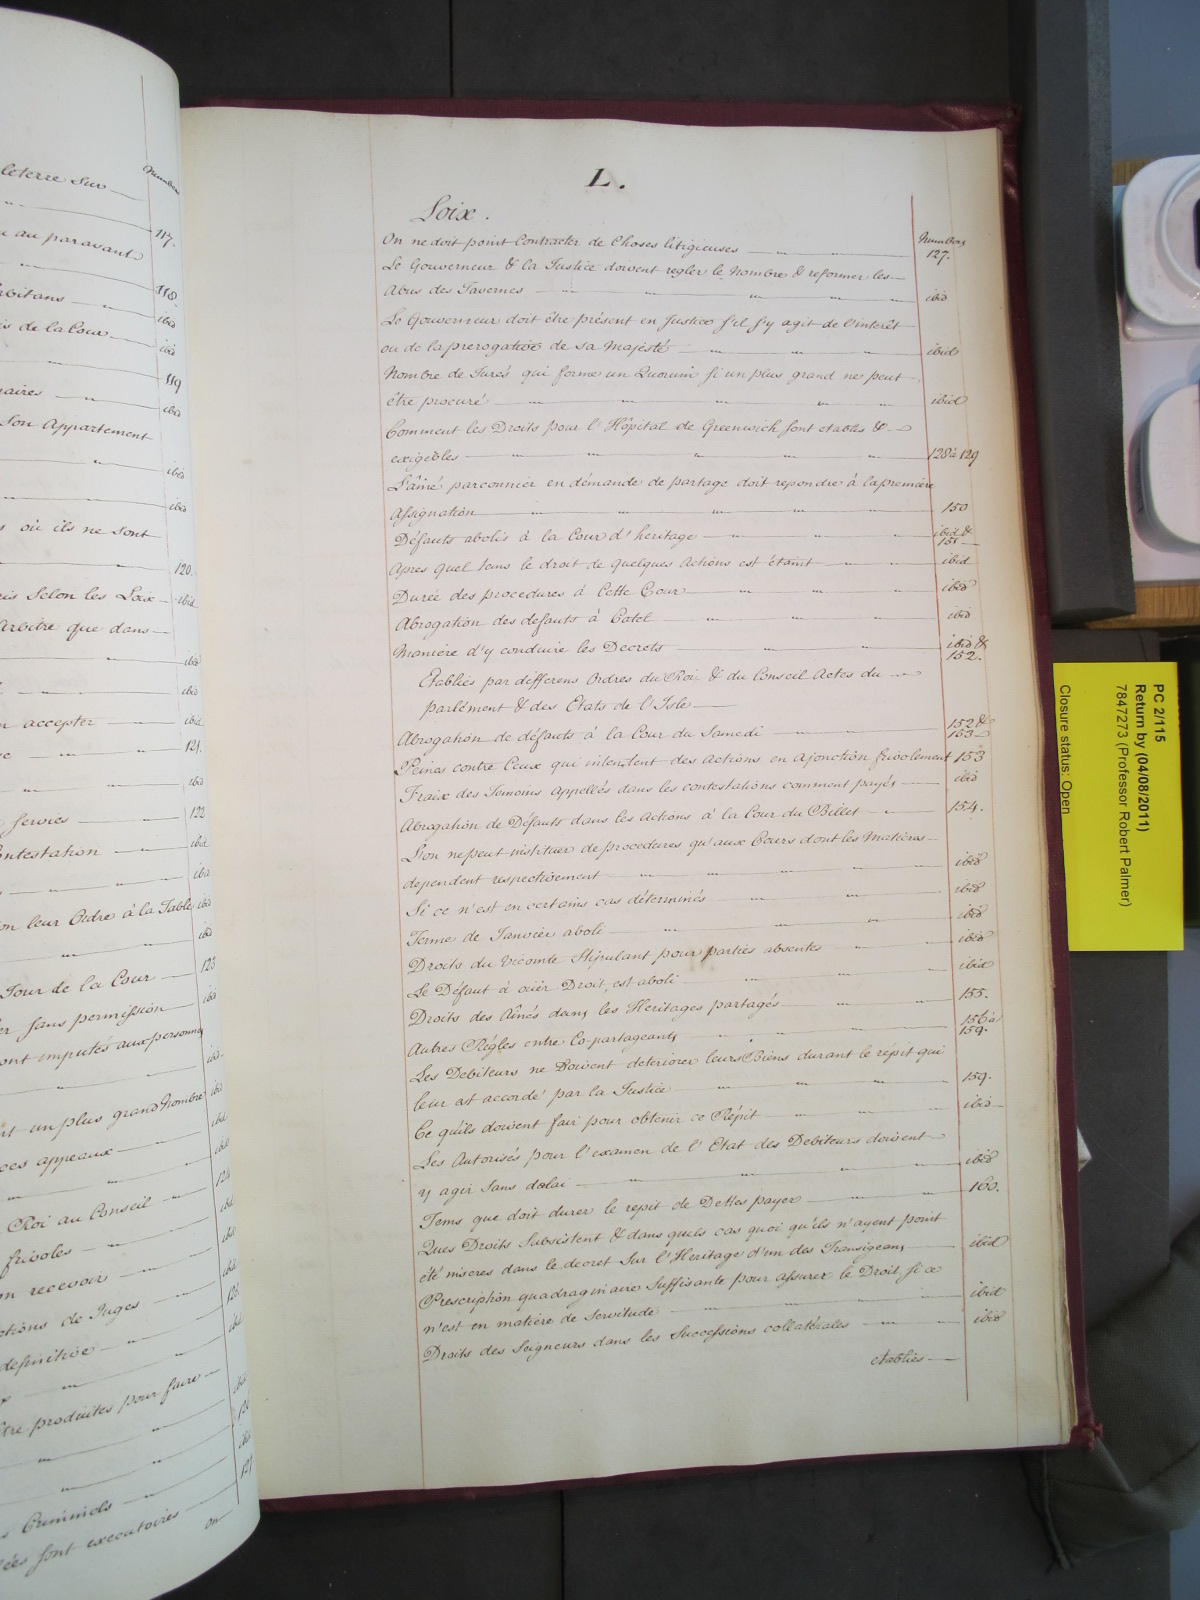 Numbers
leterre sur
117.
au paravant
118
bitans ibid
is de la Cour
ibid
119
naires ibid
Son Appartement
ibid
ibid
où ils ne sont
120.
Selon les Loix ibid
Arbitre que dans
ibid
ibid
accepter ibid
121.
ibid
services 122
ontestation ibid
ibid
on leur Ordre à la Table ibid
ibid
Tour de la Cour 123
er sans permission ibid
ont imputés aux personnes
ibid.
un plus grand Nombre ibid
ces appeaux ibid
ibid
Roi au Conseil 124
frivoles ibid
on recevoir ibid
ctions de Juges ibid
definitive 125
ibid
tre produites pour faire
ibid
126
ibid
s Criminels 127
ées sont executoires
on
L.
Loix.
Numbers
On ne doit point Contracter de Choses litigieuses 127.
Le Gouverneur & la Justice doivent regler le Nombre & reformer les
Abus des Tavernes ibid
Le Gouverneur doit être présent en Justice s'il s'y agit de l'interêt
ou de la prerogative de sa Majesté ibid
Nombre de Jurés qui forme un Quorum si un plus grand ne peut
être procuré ibid
Comment les Droits pour l'Hôpital de Greenwich sont etablis &
exigibles 128 à 129
L'âiné parconnier en démande de partage doit repondre à la première
Assignation 150
Défauts abolis à la Cour d'heritage ibid & 151
Apres quel tems le droit de quelques Actions est étaint ibid
Durée des procedures à Cette Cour ibid
Abrogation des defauts à Catel ibid
Maniere d'y conduire les Decrets ibid & 152.
Etablies par differens Ordres du Roi & du Conseil Actes du
parlément & des Etats de l'Isle
Abrogation de défauts à la Cour du Samedi 152 & 153
Peines contre Ceux qui intentent des Actions en Ajonction frivolement 153
Fraix des Temoins appellés dans les contestations comment payés ibid
Abrogation de Défauts dans les Actions à la Cour du Billet 154.
L'on ne peut instituer de procedures qu'aux Cours dont les Matieres
dependent respectivement ibid
Si ce n'est en certains cas déterminés ibid
Terme de Janvier aboli ibid
Droits du Vicomte Stipulant pour parties absentes ibid
Le Défaut à oüir Droit, est aboli ibid
Droits des Aînés dans les Heritages partagés 155.
Autres Régles entre Co-partageants 156 à 159.
Les Debiteurs ne Doivent deteriorer leurs Biens durant le répit qui
leur est accordé par la Justice 159.
Ce qu'ils doivent fair pour obtenir ce Répit ibid
Les Autorisés pour l'examen de l'Etat des Debiteurs doivent
y agir sans delai ibid
Tems que doit durer le repit de Dettes payer 160.
Ques Droits Subsistent & dans quels cas quoi qu'ils n'ayent point
été miseres dans le decret sur l'Heritage d'un des Transigeans ibid
Prescription quadraginaire Suffisante pour assurer le Droit, si ce
n'est en matiére de Servitude ibid
Droits des Seigneurs dans les Successions collatérales ibid
etablies
PC 2/115
Return by (04/08/2011)
7847273 (Professor Robert Palmer)
Closure status: Open